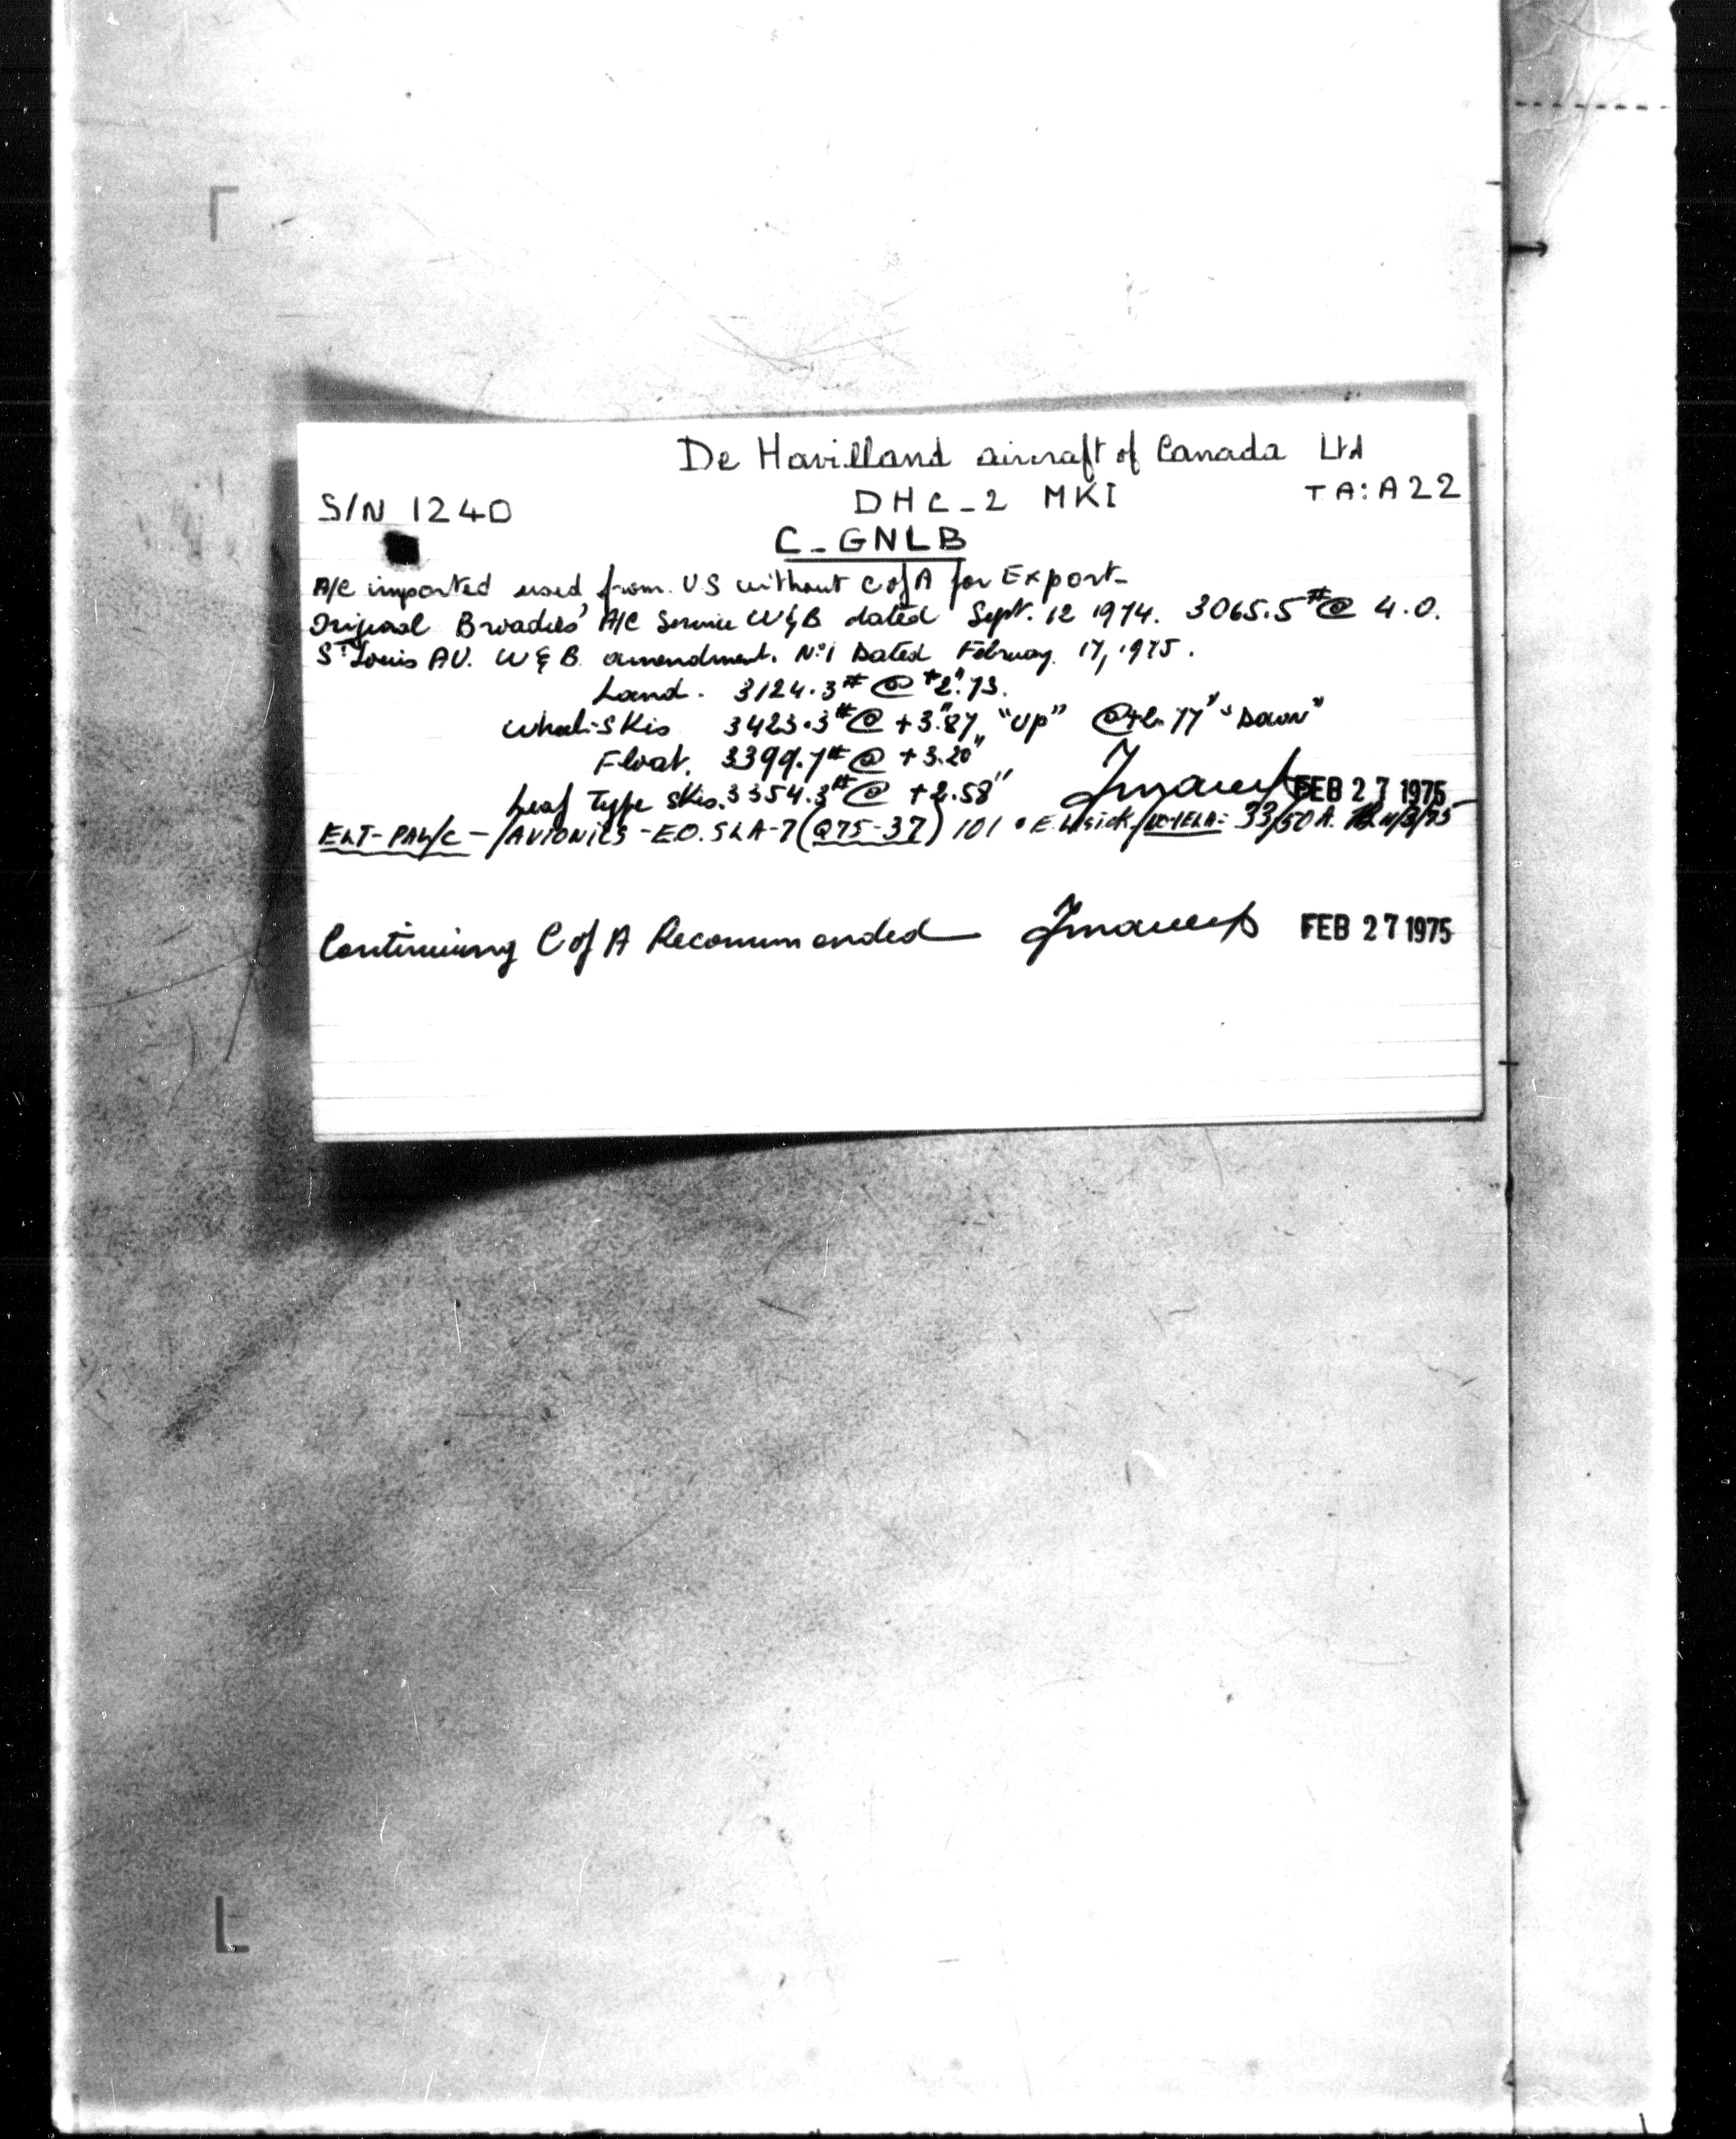 De Havilland aircraft of Canada Ltd
S/N 1240 DHC-2 MKI TA:A22
C-GNLB
A/C imported used from U.S without C of A for Export-
Original Broadies' A/C Service W&B dated Sept. 12 1974. 3065.5# @ 4.0.
St Louis AV. W&B amendment. No1 Dated February 17, 1975.
Land. 3124.3# @ +2".73.
Wheel-Skis 3423.3# @ +3".87, "Up" @+2.77" "Down"
Float. 3399.7# @ +3.20"
Leaf Type Skis. 3354.3# @ +2.58" FEB 27 1975
ELT-PAW/C - /AVIONICS - E.O. SLA-7 (Q75-37) 101 33/50 A. 11/3/75
Continuing C of A Recommended FEB 27 1975